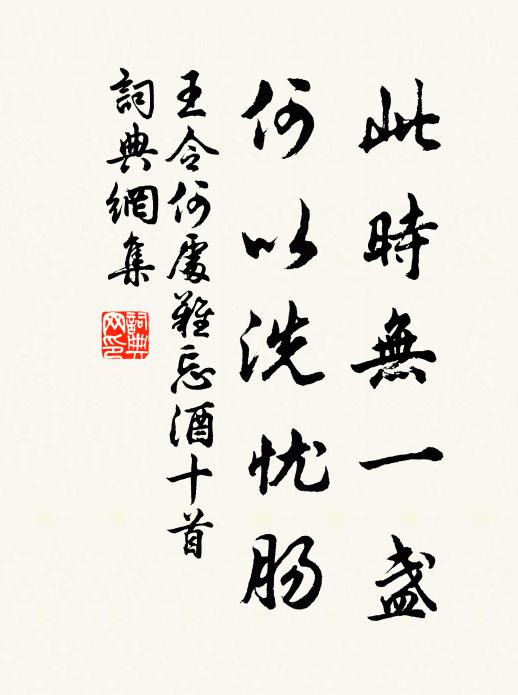 此時無一盏
何以洗忧肠
王令何處難忘酒十首
詞典網集
詞典網印